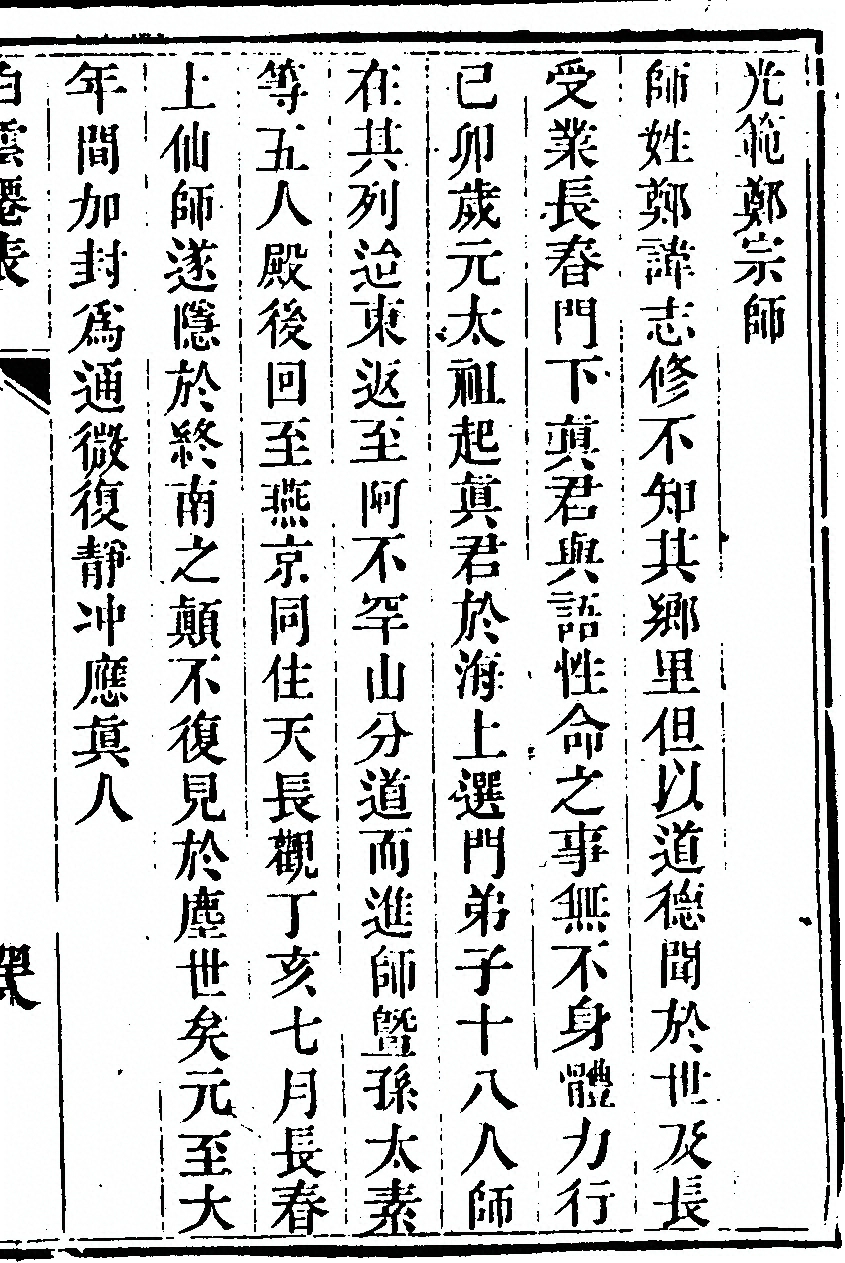 光範鄭宗師
師姓鄭諱志修不知其鄉里但以道德聞於世及長
受業長春門下眞君與語性命之事無不身體力行
己卯歲元太祖起眞君於海上選門弟子十八人師
在其列迨東返至阿不罕山分道而進師曁孫太素
等五人殿後回至燕京同住天長觀丁亥七月長春
上仙師遂隱於終南之顛不復見於塵世矣元至大
年間加封爲通微復靜冲應眞人
白雲僊表